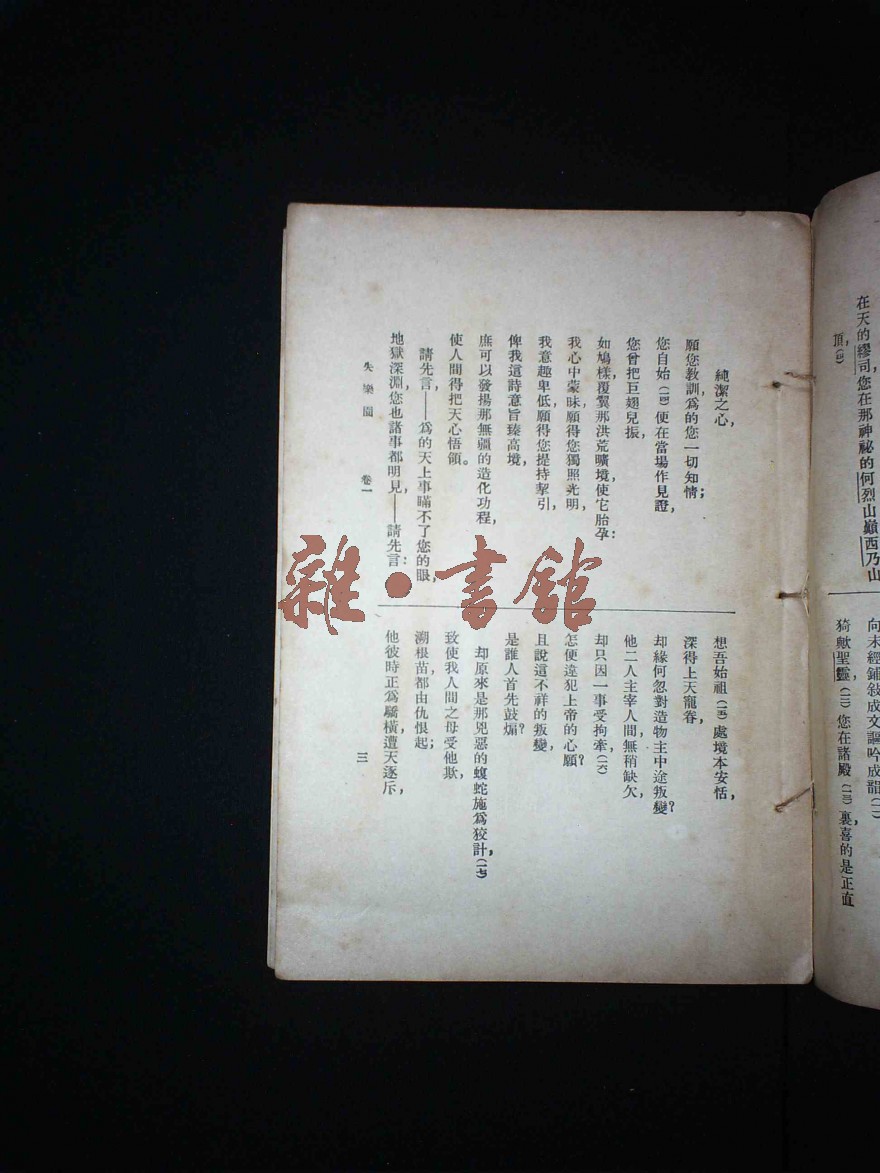 在天的繆司,您在那神祕的何烈山巔西乃山
頂,(四)
向未經鋪敍成文謳吟成韻(一一)
猗歟聖靈,(一二)您在諸殿(一三)裏喜的是正直
純潔之心,
願您教訓,爲的您一切知情;
您自始(一四)便在當場作見證,
您曾把巨翅兒振,
如鳩樣,覆翼那洪荒曠境,使它胎孕:
我心中蒙昧,願得您獨照光明,
我意趣卑低,願得您提持挈引,
俾我這詩意旨臻高境,
庶可以發揚那無疆的造化功程,
使人間得把天心悟領。
請先言,——爲的天上事瞞不了您的眼,
地獄深淵,您也諸事都明見,——請先言:
想吾始祖(一五)處境本安恬,
深得上天寵眷,
却緣何忽對造物主中途叛變?
他二人主宰人間,無稍缺欠,
却只因一事受拘牽,(一六)
怎便違犯上帝的心願?
且說這不祥的叛變,
是誰人首先鼓煽?
却原來是那兇惡的蝮蛇施爲狡計,(一七)
致使我人間之母受他欺,
溯根苗都由仇恨起;
他彼時正爲驕橫遭天逐斥,
失樂園 卷一
三
雜·書館